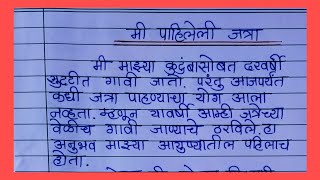 मी पाहिलेली जत्रा
मी माझ्या कुटुंबासोबत दरवर्षी
सुट्टीत गावी जातो. परंतु आजपर्यंत
कधी जत्रा पाहण्याचा योग आला
नव्हता. म्हणून यावर्षी आम्ही जत्रेच्या
वेळीच गावी जाण्याचे ठरविले. हा
अनुभव माझ्या आयुष्यातील पहिलाच
होता.